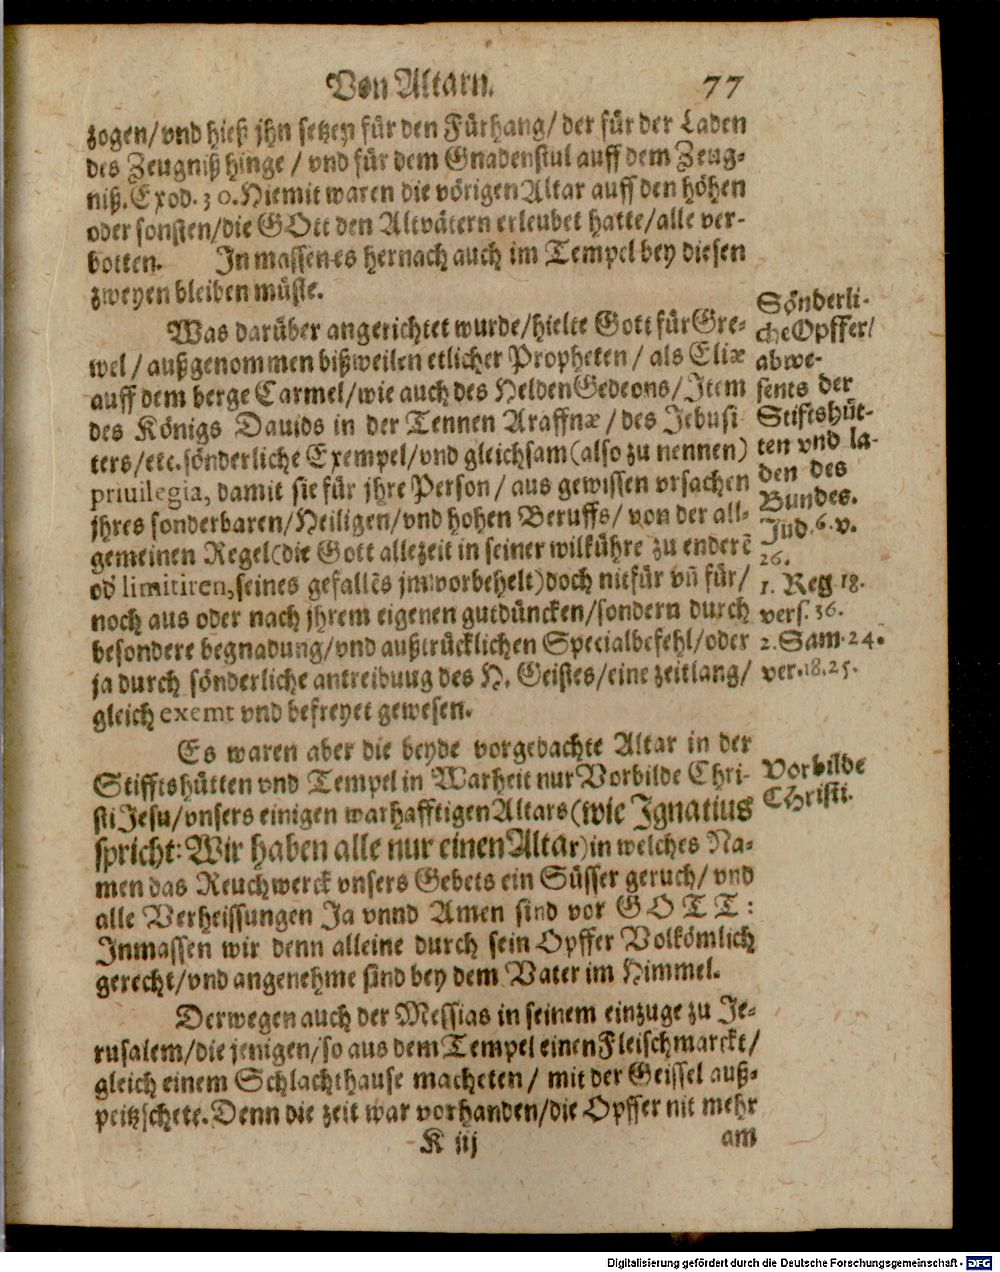 Von Altarn. 77
zogen/vnd hieß jhn setzen für den Fürhang/ der für der Laden
des Zeugniß hinge / vnd für dem Gnadenstul auff dem Zeug-
niß. Exod. 30. Hiemit waren die vörigen Altar auff den höhen
oder sonsten/die GOtt den Altvätern erleubet hatte/alle ver-
botten. Inmassen es hernach auch im Tempel bey diesen
zweyen bleiben müste.
Was darüber angerichtet wurde/hielte Gott für Gre-
wel / außgenommen bißweilen etlicher Propheten / als Eliæ
auff dem berge Carmel/wie auch des Helden Gedeons/ Item
des Königs Dauids in der Tennen Araffnæ / des Jebusi
ters/etc. sönderliche Exempel/vnd gleichsam (also zu nennen)
priuilegia, damit sie für jhre Person / aus gewissen vrsachen
jhres sonderbaren/Heiligen/vnd hohen Beruffs/ von der all-
gemeinen Regel (die Gott allezeit in seiner wilkühre zu enderē
od' limitiren, seines gefallēs jm vorbehelt) doch nit für vñ für/
noch aus oder nach jhrem eigenen gutdüncken/sondern durch
besondere begnadung/vnd außtrücklichen Specialbefehl/oder
ja durch sönderliche antreibuug des H. Geistes/eine zeitlang/
gleich exemt vnd befreyet gewesen.
Sönderli-
che Opffer/
abwe-
sents der
Stiftshüt-
ten vnd la-
den des
Bundes.
Jud. 6. v.
26.
1. Reg 18.
vers. 36.
2. Sam. 24.
ver. 18. 25.
Es waren aber die beyde vorgedachte Altar in der
Stifftshütten vnd Tempel in Warheit nur Vorbilde Chri-
sti Jesu/vnsers einigen warhafftigen Altars (wie Ignatius
spricht: Wir haben alle nur einen Altar) in welches Na-
men das Reuchwerck vnsers Gebets ein Süsser geruch/ vnd
alle Verheissungen Ja vnnd Amen sind vor GOTT:
Inmassen wir denn alleine durch sein Opffer Volkömlich
gerecht/vnd angenehme sind bey dem Vater im Himmel.
Vorbilde
CHristi.
Derwegen auch der Messias in seinem einzuge zu Je-
rusalem/die jenigen/so aus dem Tempel einen Fleischmarckt/
gleich einem Schlachthause macheten / mit der Geissel auß-
peitzschete. Denn die zeit war vorhanden/die Opffer nit mehr
K iij am
Digitalisierung gefördert durch die Deutsche Forschungsgemeinschaft - DFG